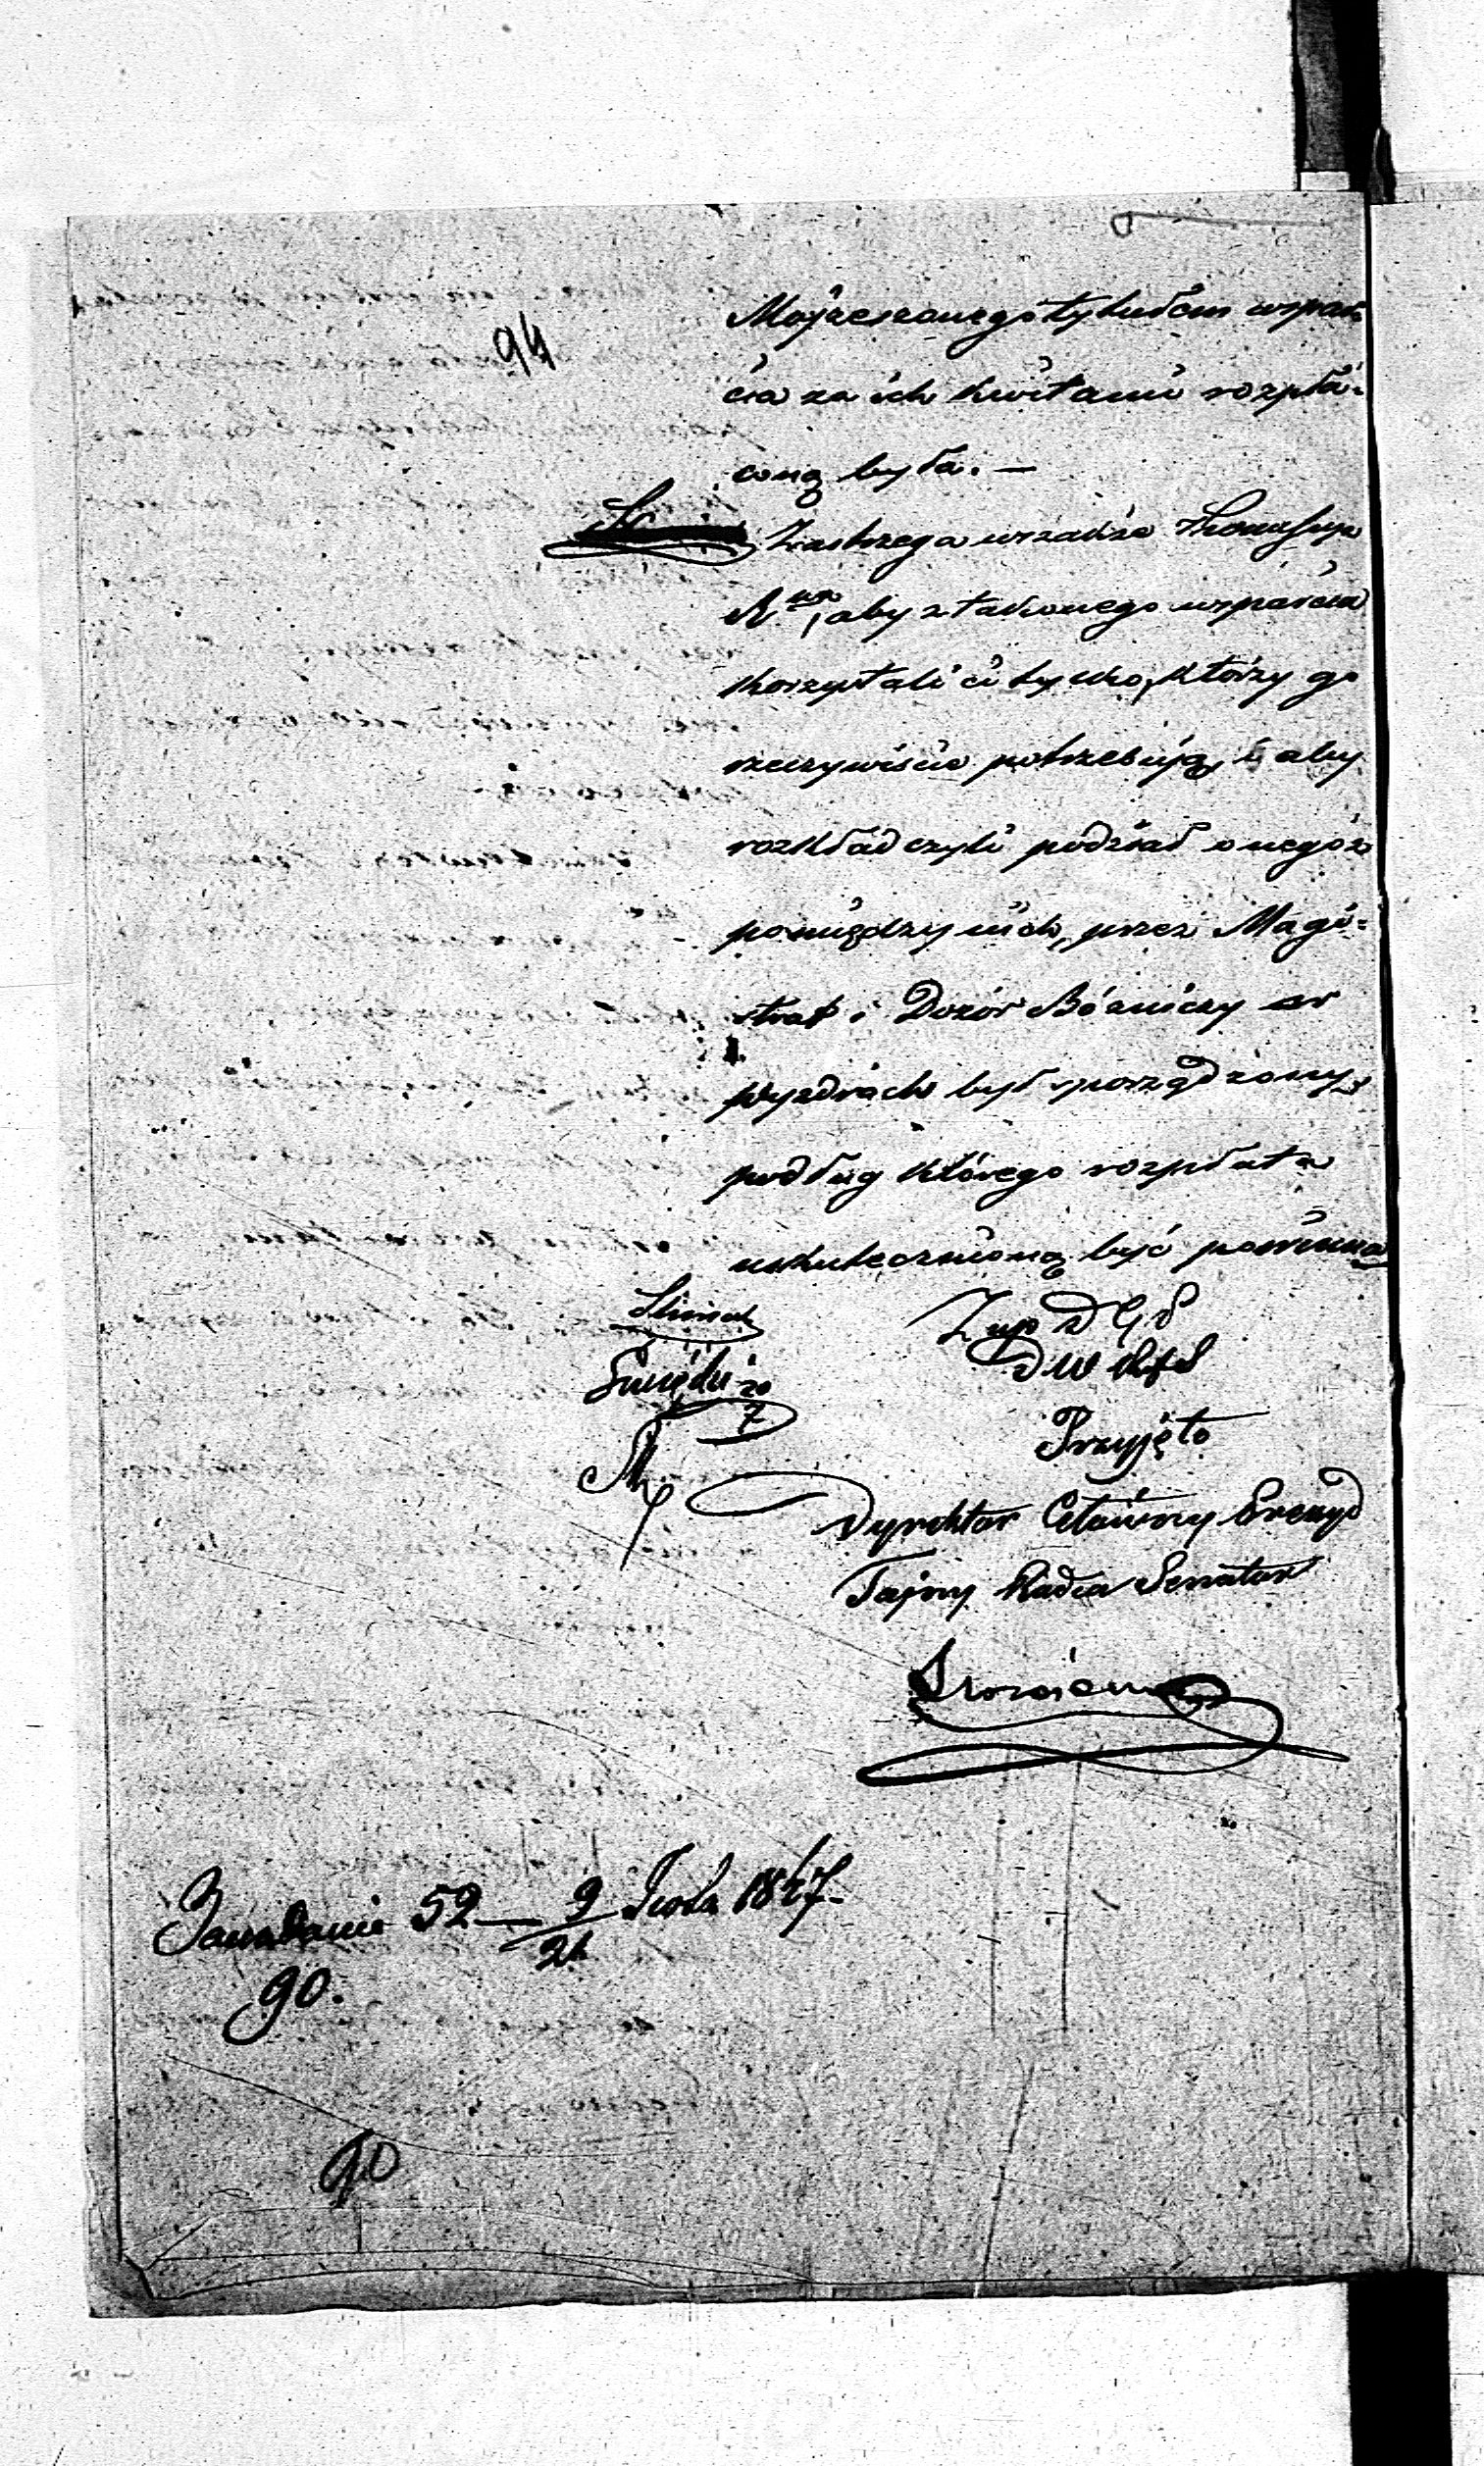 94
Mojżeszowego tytułem wspar=
cia za ich kwitami rozpła=
coną była. —
Zastrzega wszakże Kommissya
R.wa, aby z takowego wsparcia
korzystali ci tylko, którzy go
rzeczywiście potrzebują, i aby
rozkład czyli podział onegóż
pomiędzy nich, przez Magi=
strat i Dozór Bóżniczy w
Wyzdrach był sporządzony,
podług którego rozpłata
uskutecznioną być powinna
Z up D G P
D W R S
Przyjęto
Dyrektor Główny Prezyd
Tajny Radca Senator
52 — 9/21 1847.
90.
90